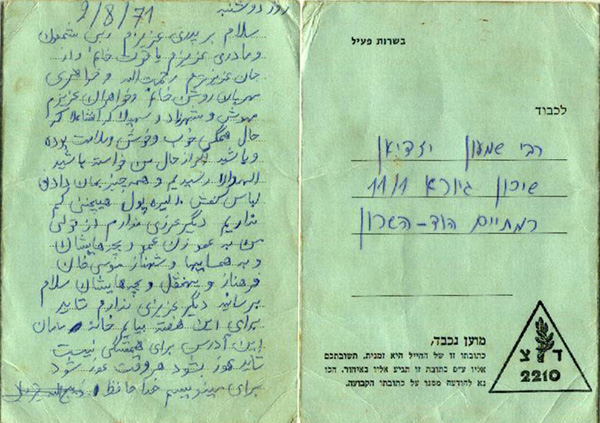 روز دوشنبه
2/8/71
سلام بر پدری عزیزم ربی شمعون
و مادری عزیزم یاقوت خانم و از
جان عزیزترم رحمت‌الله و خواهری
مهربان روشن خانم و خواهران عزیزم
مهوش و شهرزاد و سهیلا که انشاءالله که
حال همگی خوب و خوش و سلامت بوده
و باشید اگر از حال من خواسته باشید
والا رسیدیم و همه چیز بمان دادن
لباس کفش و الیره پول هیچی کم
نداریم دیگر عرضی ندارم از قولی
من به عمو زن عمو و بچه‌هایشان
و به همسایه‌ها و شهناز موسی خان
فرهناز و بچه‌هایشان سلام
برسانید دیگر عرضی ندارم شاید
برای این هفته بیایم خانه
این آدرس برای همیشگی نیست
شاید عوض بشود هر وقت عوض شود
برای مینویسم خداحافظ
בשרות פעיל
לכבוד
רבי שמעון יזדיאן
שיכון גיורא 11/1
רמתיים הוד-השרון
מוען נכבד,
כתובתו זו של החייל היא זמנית, תשובתכם
אליו ע״פ כתובת זו תגיע אליו באיחור. הכו
נא להודעה ממנו על כתובתו הקבועה.
ד צ
2210